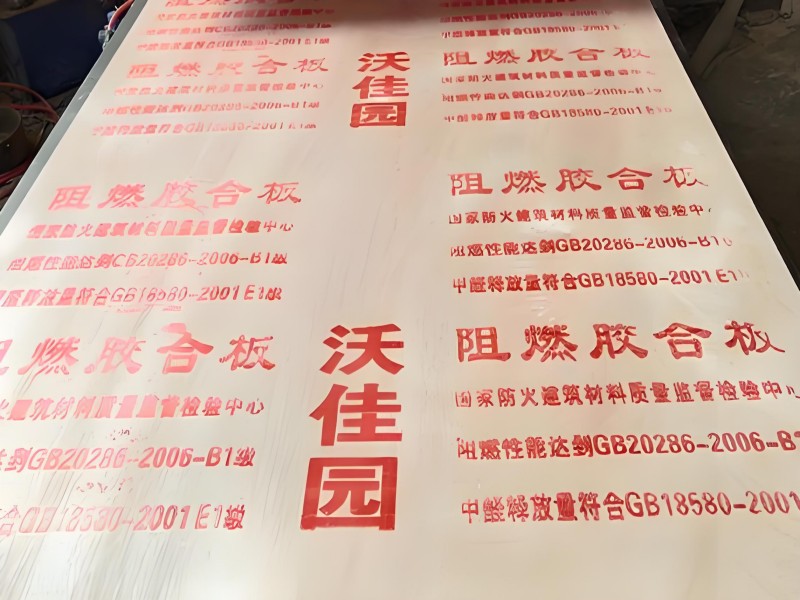 阻燃胶合板
国家防火建筑材料质量监督检验中心
阻燃性能达到GB20286-2006-B1级
甲醛释放量符合GB18580-2001 E1级
阻燃胶合板
国家防火建筑材料质量监督检验中心
阻燃性能达到GB20286-2006-B1级
甲醛释放量符合GB18580-2001 E1级
燃胶合板
火建筑材料质量监督检验中心
到GB20286-2006-B1级
合GB18580-2001 E1级
沃佳园
沃佳园
阻燃性能达到GB20286-2006
甲醛释放量符合GB18580-2001 E1
阻燃胶合板
国家防火建筑材料质量监督检验中心
阻燃性能达到GB20286-2006-B1
甲醛释放量符合GB18580-2001 E1级
阻燃胶合板
国家防火建筑材料质量监督检验中
阻燃性能达到GB20286-2006-B1
甲醛释放量符合GB18580-2001 E1
阻燃胶合板
国家防火建筑材料质量监督检验中心
阻燃性能达到GB20286-2006-B1
甲醛释放量符合GB18580-2001